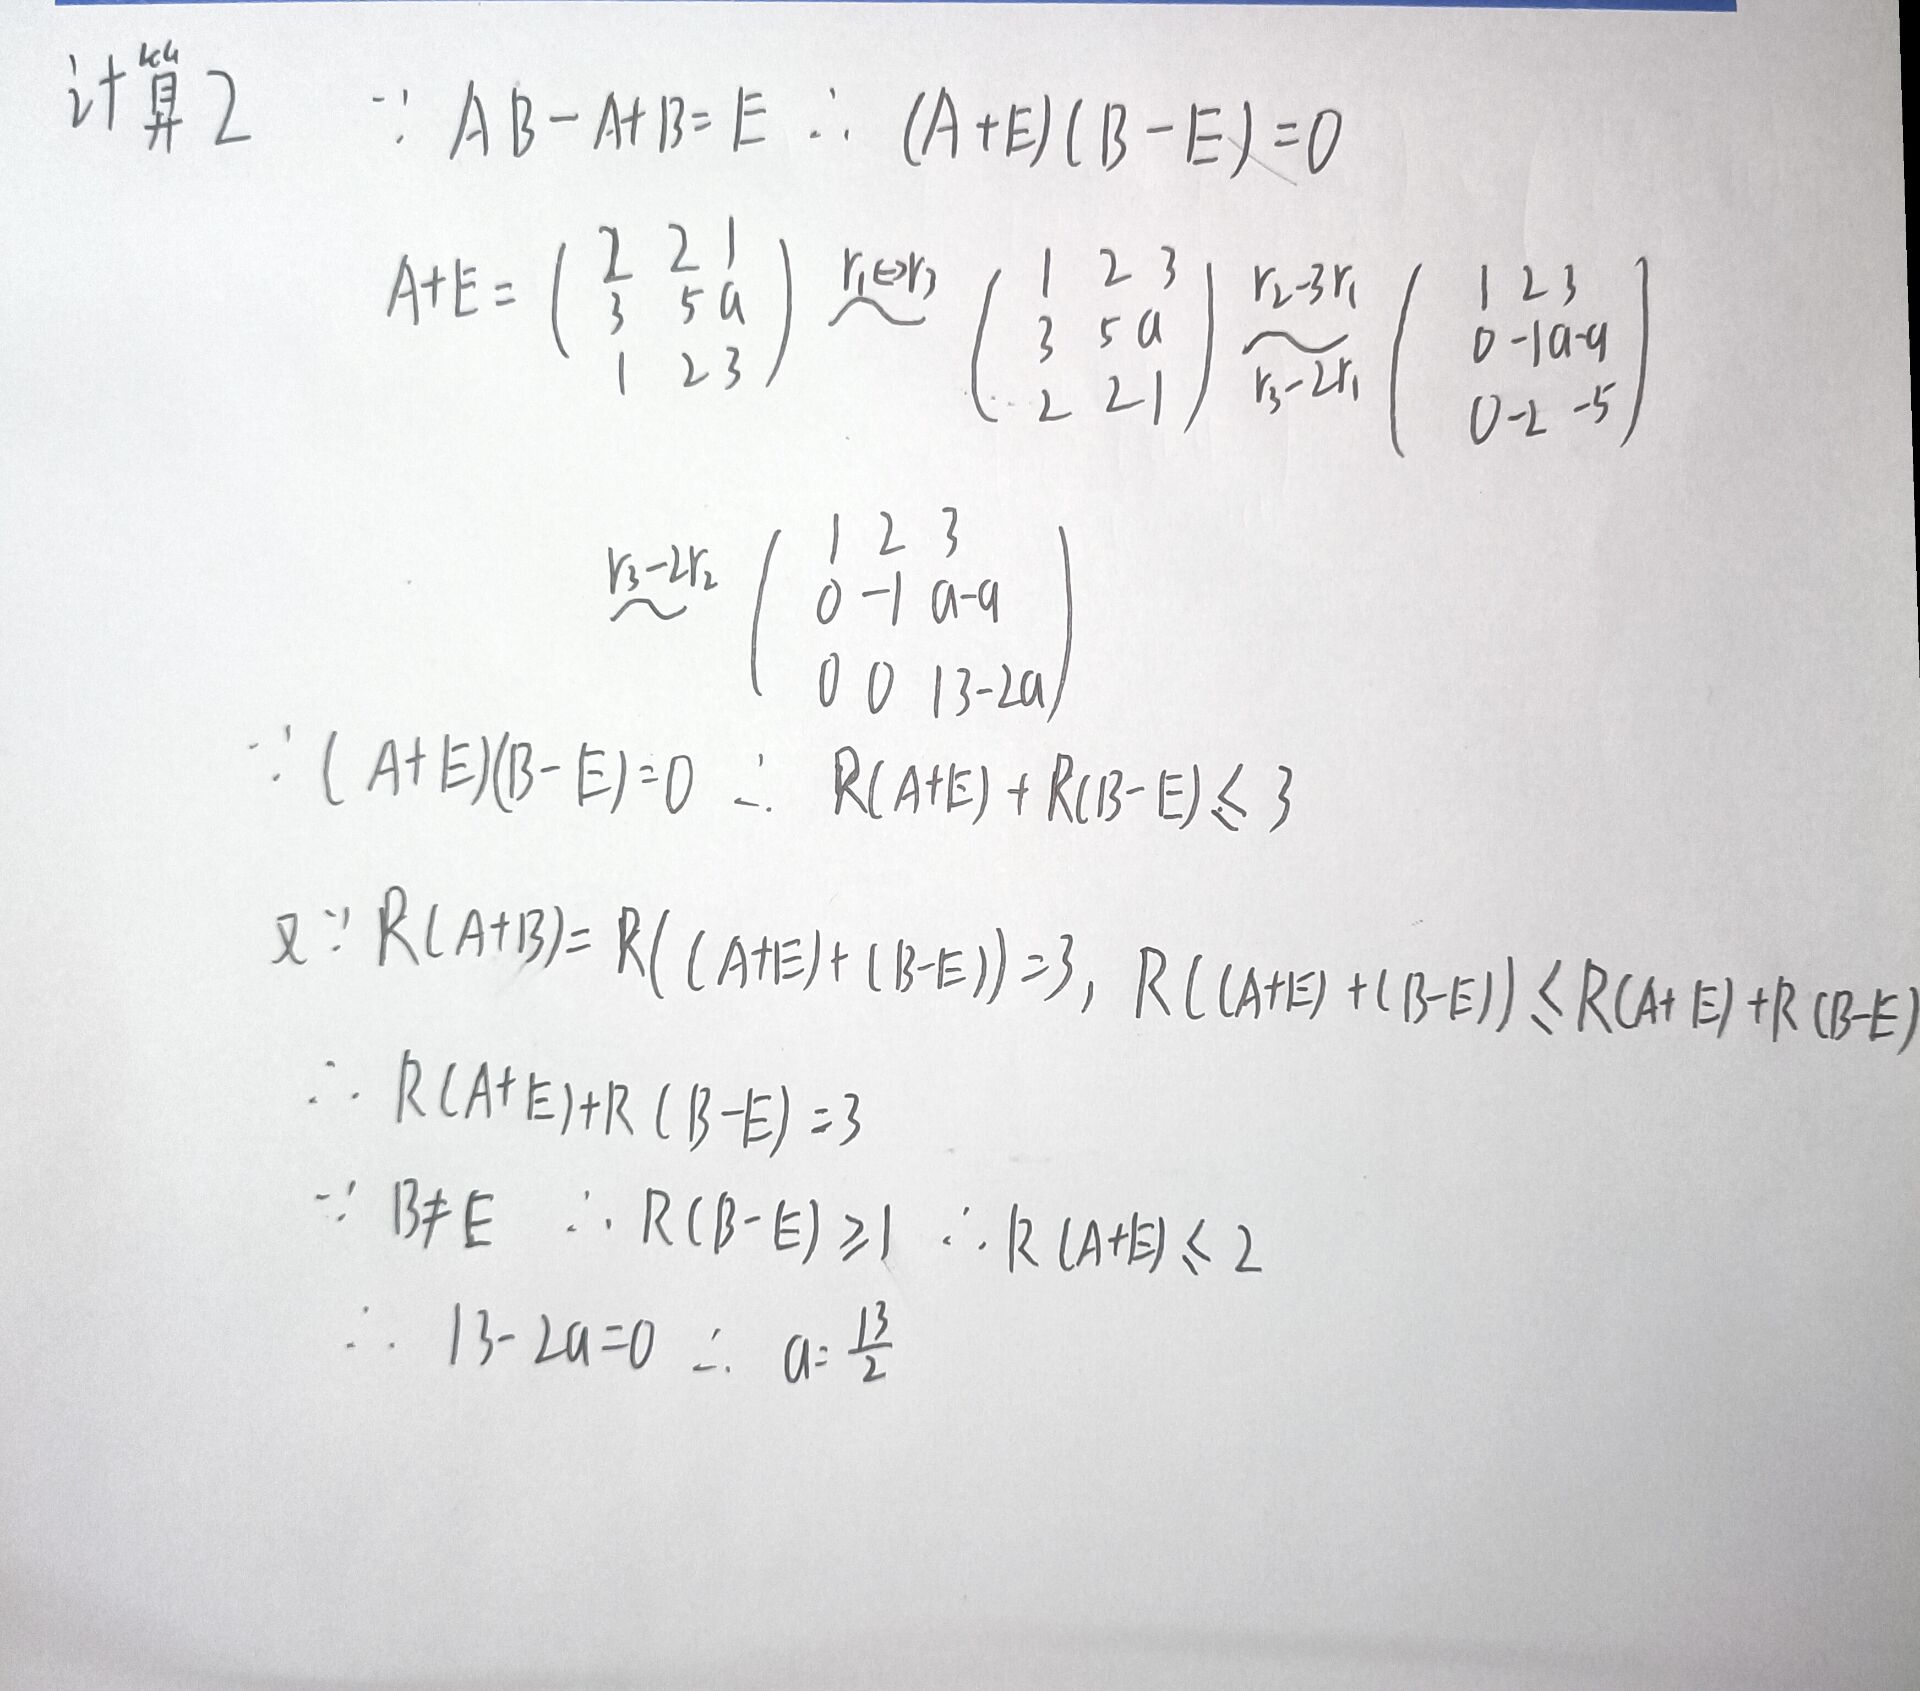 计算2 ∵ AB-A+B=E ∴ (A+E)(B-E)=0
A+E= ( 2 2 1 ) r₁↔r₃ ( 1 2 3 ) r₂-3r₁ ( 1 2 3 )
3 5 a ~ 3 5 a ~ 0 -1 a-9
1 2 3 2 2 1 r₃-2r₁ 0 -2 -5
r₃-2r₂ ( 1 2 3 )
~ 0 -1 a-9
0 0 13-2a
∵ (A+E)(B-E)=0 ∴ R(A+E)+R(B-E)≤3
又∵ R(A+B)=R((A+E)+(B-E))=3, R((A+E)+(B-E))≤R(A+E)+R(B-E)
∴ R(A+E)+R(B-E)=3
∵ B≠E ∴ R(B-E)≥1 ∴ R(A+E)≤2
∴ 13-2a=0 ∴ a=13/2